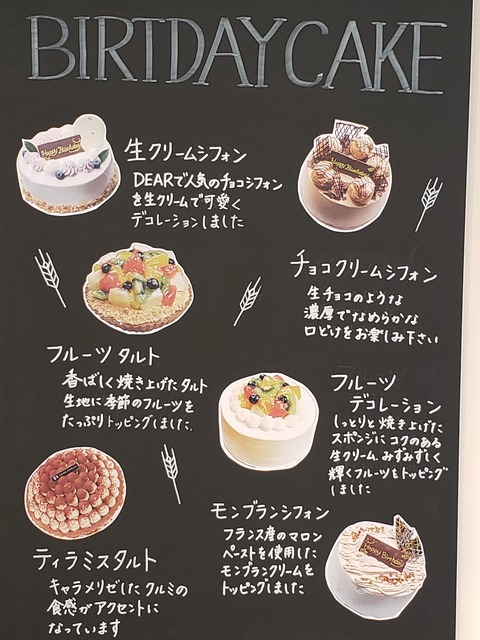 BIRTDAY CAKE
生クリームシフォン
DEARで人気のチョコシフォン
を生クリームで可愛く
デコレーションしました
チョコクリームシフォン
生チョコのような
濃厚でなめらかな
口どけをお楽しみ下さい
フルーツタルト
香ばしく焼き上げたタルト
生地に季節のフルーツを
たっぷりトッピングしました
フルーツ
デコレーション
しっとりと焼き上げた
スポンジにコクのある
生クリーム、みずみずしく
輝くフルーツをトッピング
しました
ティラミスタルト
キャラメリゼしたクルミの
食感がアクセントに
なっています
モンブランシフォン
フランス産のマロン
ペーストを使用した
モンブランクリームを
トッピングしました
Happy Birthday
Happy Birthday
Happy Birthday